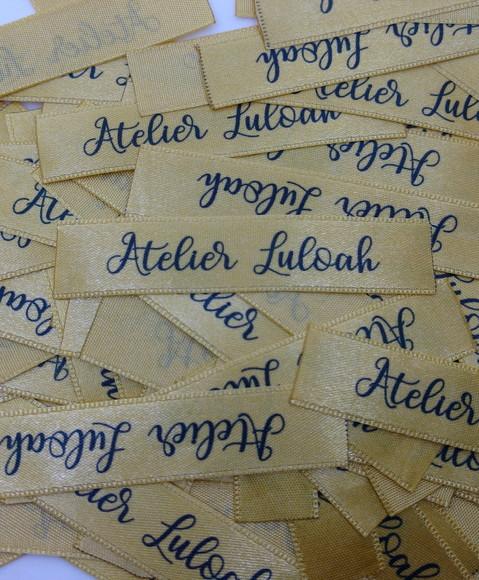 Atelier
Luloah
Atelier Luloah
Atelier
Luloah
Atelier Luloah
Atelier
Atelier Luloah
Luloah